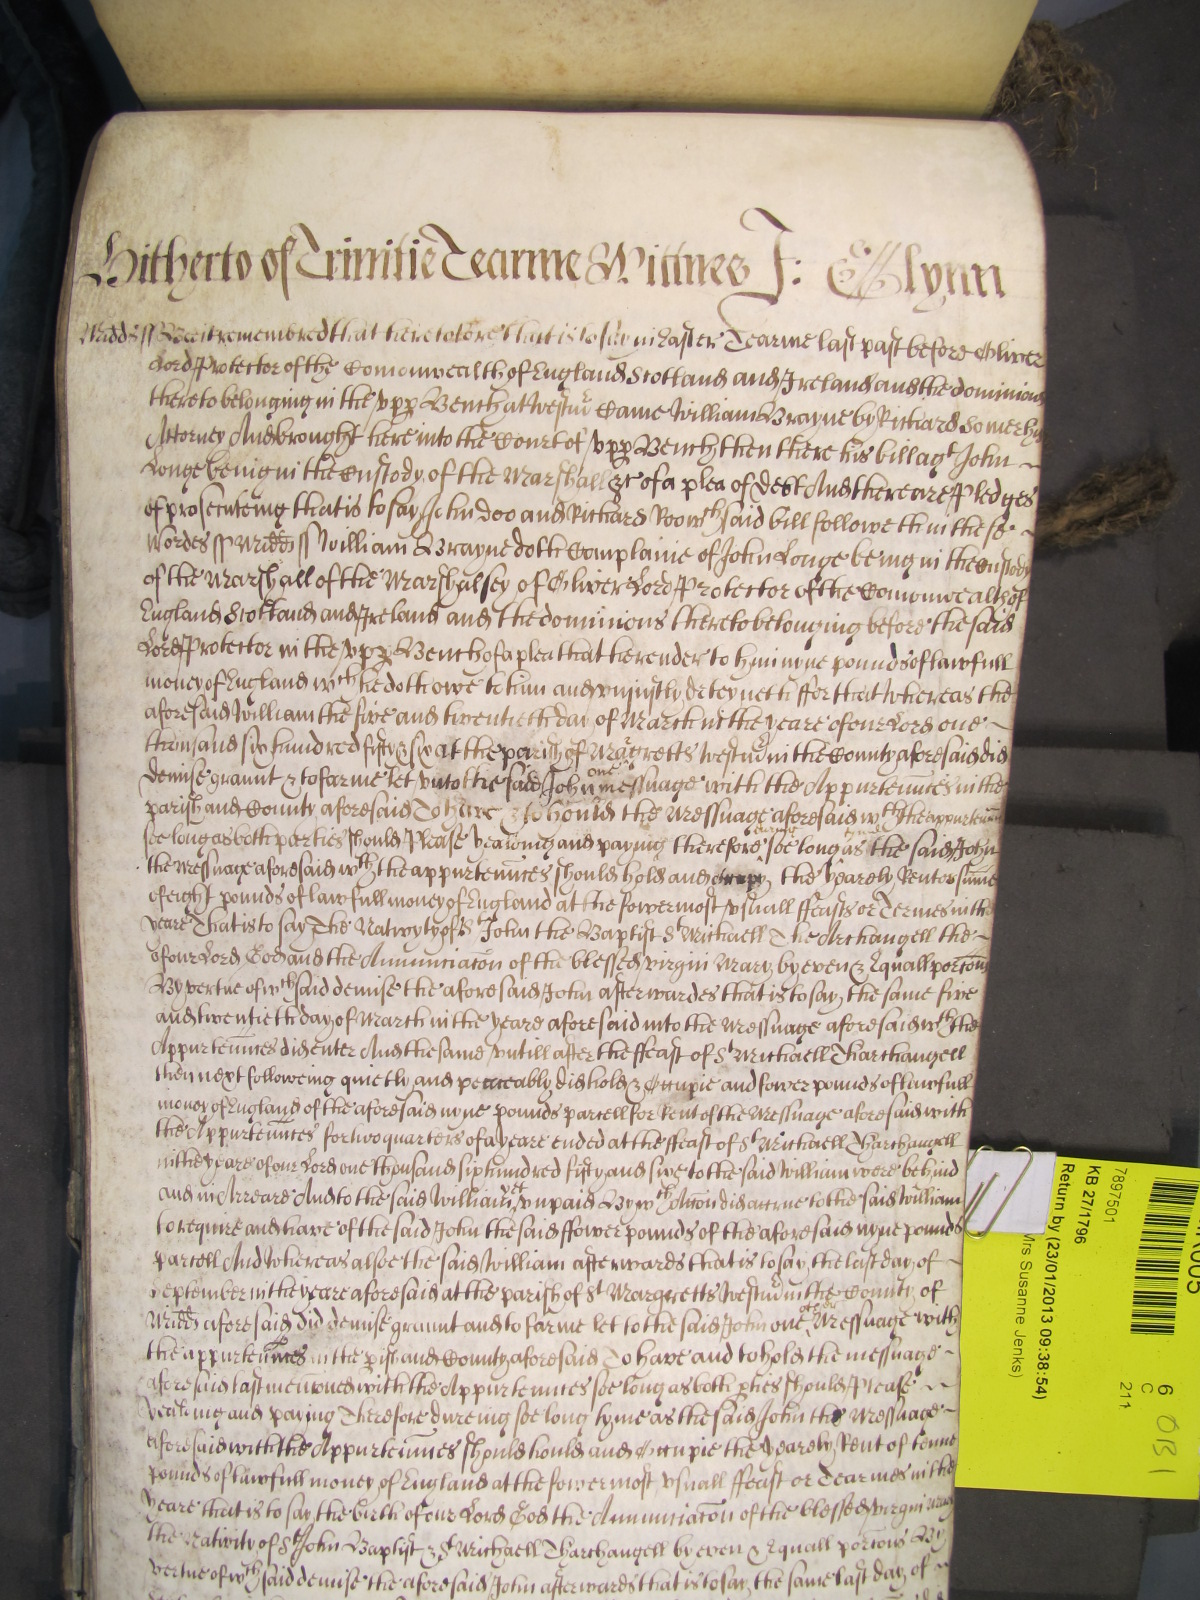 Hitherto of Trinitie Tearme Wittnes J: Glynn
Midds ss Bee it remembred that heretofore that is to say in Easter Tearme last past before Oliver
Lord Protector of the Comonwealth of England Scotland and Ireland and the dominions
thereto belonging in the vpp Bench at Westmr Came William Brayne by Richard Somerby
Attorney And brought here into the Court of vpp Bench then there his bill agt John
Longe being in the Custody of the Marshall &c of a plea of debt And there are Pledges
of prosecuteing that is to say John Doo and Richard Roo wch said bill followeth in these
wordes ss Midds ss William Brayne doth Complaine of John Longe being in the Custody
of the Marshall of the Marshalsey of Oliver Lord Protector of the Comonwealth of
England Scotland and Ireland and the dominions thereto belonging before the said
Lord Protector in the vpp Bench of a plea that he render to him nyne pounds of lawfull
money of England wch he doth owe to him and vniustly deteyneth ffor that Whereas the
aforesaid William the five and twentieth day of March in the yeare of our Lord one
thousand six hundred fifty & six at the parish of Margretts Westmr in the County aforesaid did
demise graunt & to farme let vnto the said John one messuage with the Appurtenncs in the
parish and County aforesaid To have & to hould the Messuage aforesaid wth the appurtenncs
soe long as both parties should Please yealding and paying therefore during soe long tyme as the said John
the Messuage aforesaid wth the appurtenncs should hold and occupy the yearely Rent or summe
of eight pounds of lawfull money of England at the fower most vsuall ffeasts or Termes in the
yeare That is to say The Nativyty of St John the Baptist St Michaell The Archangell the
of our Lord God and the Annunciacon of the blessed virgin Mary by even & Equall porcons
By vertue of wch said demise the aforesaid John afterwardes that is to say the same five
and twentieth day of March in the yeare aforesaid into the Messuage aforesaid wth the
Appurtenncs did enter And the same vntill after the ffeast of St Michaell Tharchangell
then next followeing quietly and peaceably did hold & Occupie and fower pounds of lawfull
money of England of the aforesaid nyne pounds parcell for Rent of the Messuage aforesaid with
the Appurtenncs for two quarters of a yeare ended at the ffeast of St Michaell Tharchangell
in the yeare of our Lord one thousand six hundred fifty and six to the said William were behind
and in Arreare And to the said William yet vnpaid By wch Accon did accrue to the said William
to require and have of the said John the said ffower pounds of the aforesaid nyne pounds
parcell And whereas alsoe the said William afterwards that is to say the last day of
September in the yeare aforesaid at the parish of St Margretts Westmr in the County of
Midds aforesaid did demise graunt and to farme let to the said John one other Messuage with
the appurtenncs in the pish and County aforesaid To have and to hold the messuage
aforesaid last mencioned with the Appurtenncs soe long as both pties should Please
yealding and paying Therefore dureing soe long tyme as the said John the Messuage
aforesaid with the Appurtenncs should hould and Occupie the yearely Rent of tenne
pounds of lawfull money of England at the fower most vsuall ffeast or Tearmes in the
yeare that is to say the birth of our Lord God the Annunciacon of the blessed virgin Mary
the Nativity of St John Baptist & St Michaell Tharchangell by even & Equall porcons By
vertue of wch said demise the aforesaid John afterwards that is to say the same last day of
7897501
KB 27/1796
Return by (23/01/2013 09:38:54)
Mrs Susanne Jenks)
6
C
211